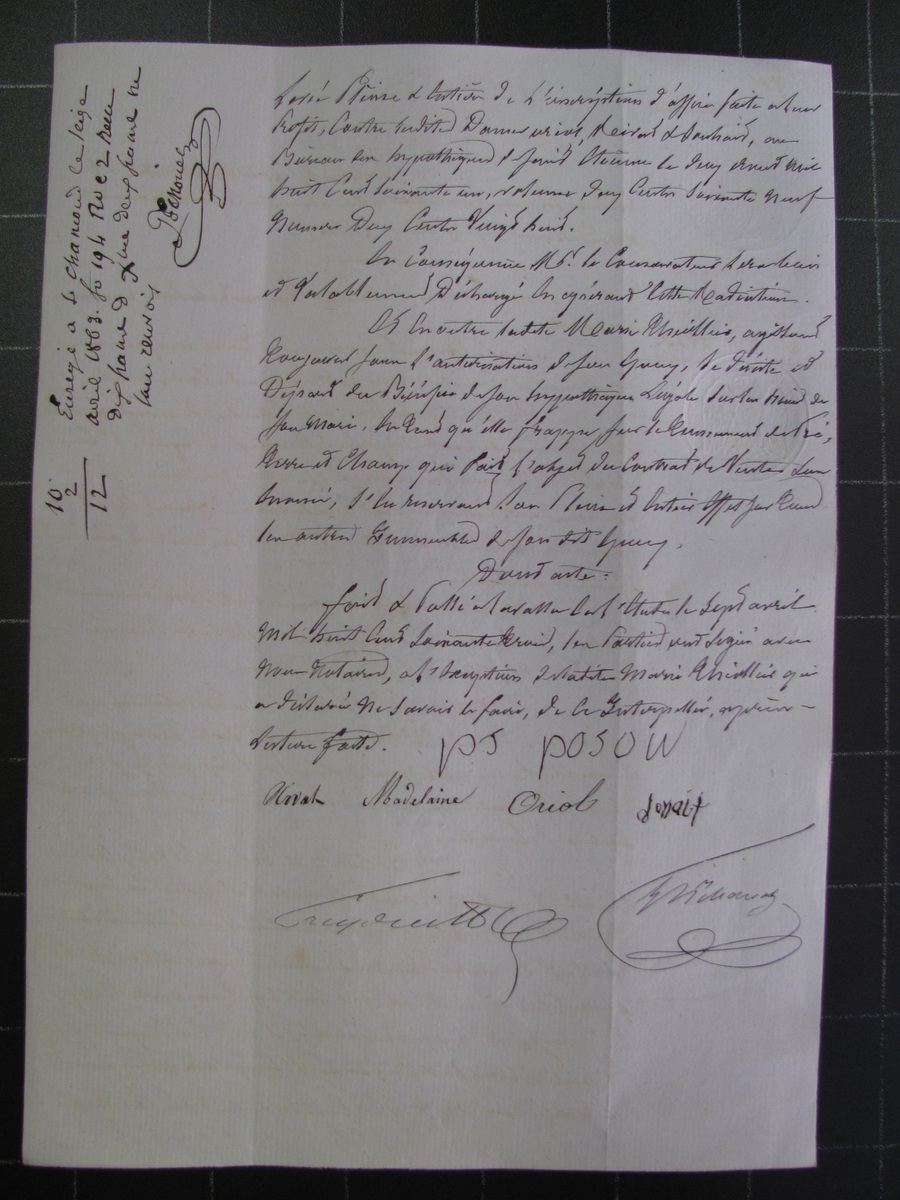 Levée Pleine & Entière de l'inscription d'office faite à leur
Profit, Contre lesdites Dames
Bureau des hypothèques de Saint Etienne le
huit Cent soixante un, volume deux Cents soixante neuf
Numéro Deux Cents Vingt huit.
En Conséquence Mr. le Conservateur sera bien
et Valablement Déchargé en opérant cette Radiation.
Et En outre ladite Marie Thiollier, agissant
toujours sous l'autorisation de son époux, se désiste et
Départ du Bénéfice de son hypothèque Légale sur les biens de
son Mari, en tant qu'elle frappe sur le tènement de Pré,
Terre et Champ qui fait l'objet du Contrat de Vente
énoncé, s'en réservant l'en Pleine et Entier Effet sur tous
les autres Immeubles de son dit époux.
Dont acte:
fait & Passé à Lavalla en l'Etude le Sept avril
Mil huit Cent Soixante trois, les Parties ont signé avec
Nous Notaires, à l'exception de ladite Marie Thiollier qui
a déclaré ne savoir le faire, de ce Interpellée, après
lecture faite.
ps posow
Madelaine Oriol
Enregé à St Chamond le seize
avril 1863. fo 194 Ro C 2 Reçu
dix francs & deux francs
10
2
12